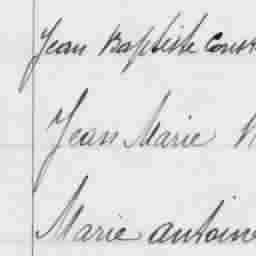 Jean Baptiste Const
Jean Marie
Marie antoin